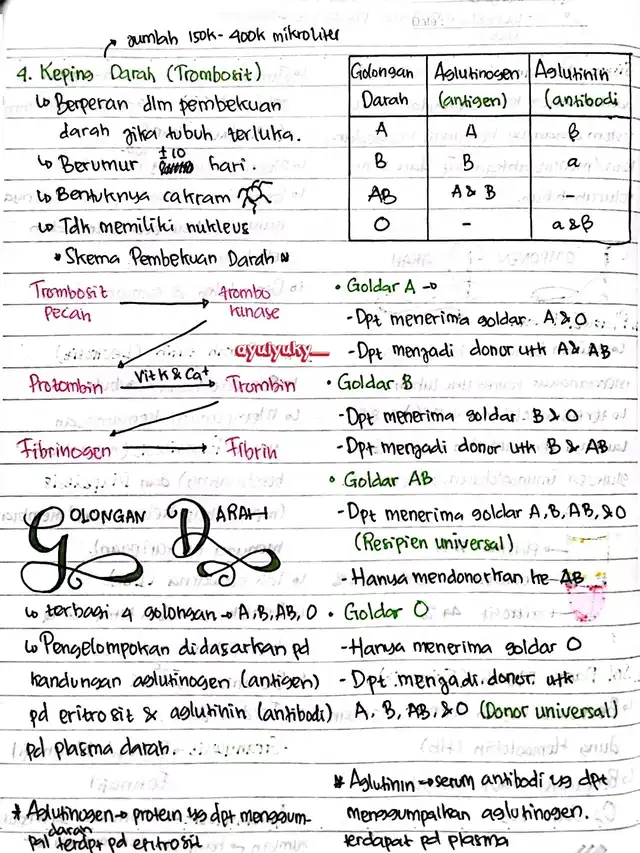 Jumlah 150k - 400k mikroliter
4. Keping Darah (Trombosit)
↳ Berperan dlm pembekuan
darah jika tubuh terluka.
↳ Berumur ±10 hari.
↳ Bentuknya cakram
↳ Tdk memiliki nukleus
* Skema Pembekuan Darah
Trombosit pecah → trombo kinase
ayulyuky__
Protombin Vit K & Ca+ → Trombin
Fibrinogen → Fibrin
GOLONGAN DARAH
↳ terbagi 4 golongan → A, B, AB, O
↳ Pengelompokan didasarkan pd
kandungan aglutinogen (antigen)
pd eritrosit & aglutinin (antibodi)
pd plasma darah.
* Aglutinogen → protein yg dpt menggum-
pal darah terdpt pd eritrosit
Golongan Darah | Aglutinogen (antigen) | Aglutinin (antibodi
A | A | β
B | B | a
AB | A & B | -
O | - | a & β
• Goldar A →
- Dpt menerima goldar A & O
- Dpt menjadi donor utk A & AB
• Goldar B
- Dpt menerima goldar B & O
- Dpt menjadi donor utk B & AB
• Goldar AB
- Dpt menerima goldar A, B, AB, & O
(Resipien universal)
- Hanya mendonorkan ke AB
• Goldar O
- Hanya menerima goldar O
- Dpt menjadi donor utk
A, B, AB, & O (Donor universal)
* Aglutinin → serum antibodi yg dpt
menggumpalkan aglutinogen.
terdapat pd plasma